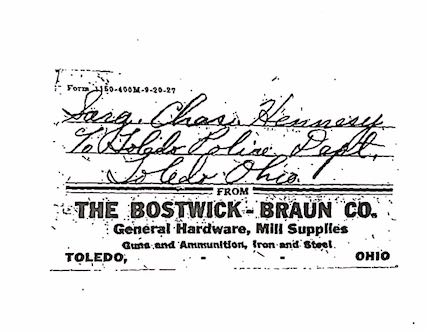 Form 1150-400M-9-20-27
Sarg. Chas. Hennesy
℅ Toledo Police Dept.
Toledo Ohio
FROM
THE BOSTWICK - BRAUN CO.
General Hardware, Mill Supplies
Guns and Ammunition, Iron and Steel
TOLEDO, - - OHIO